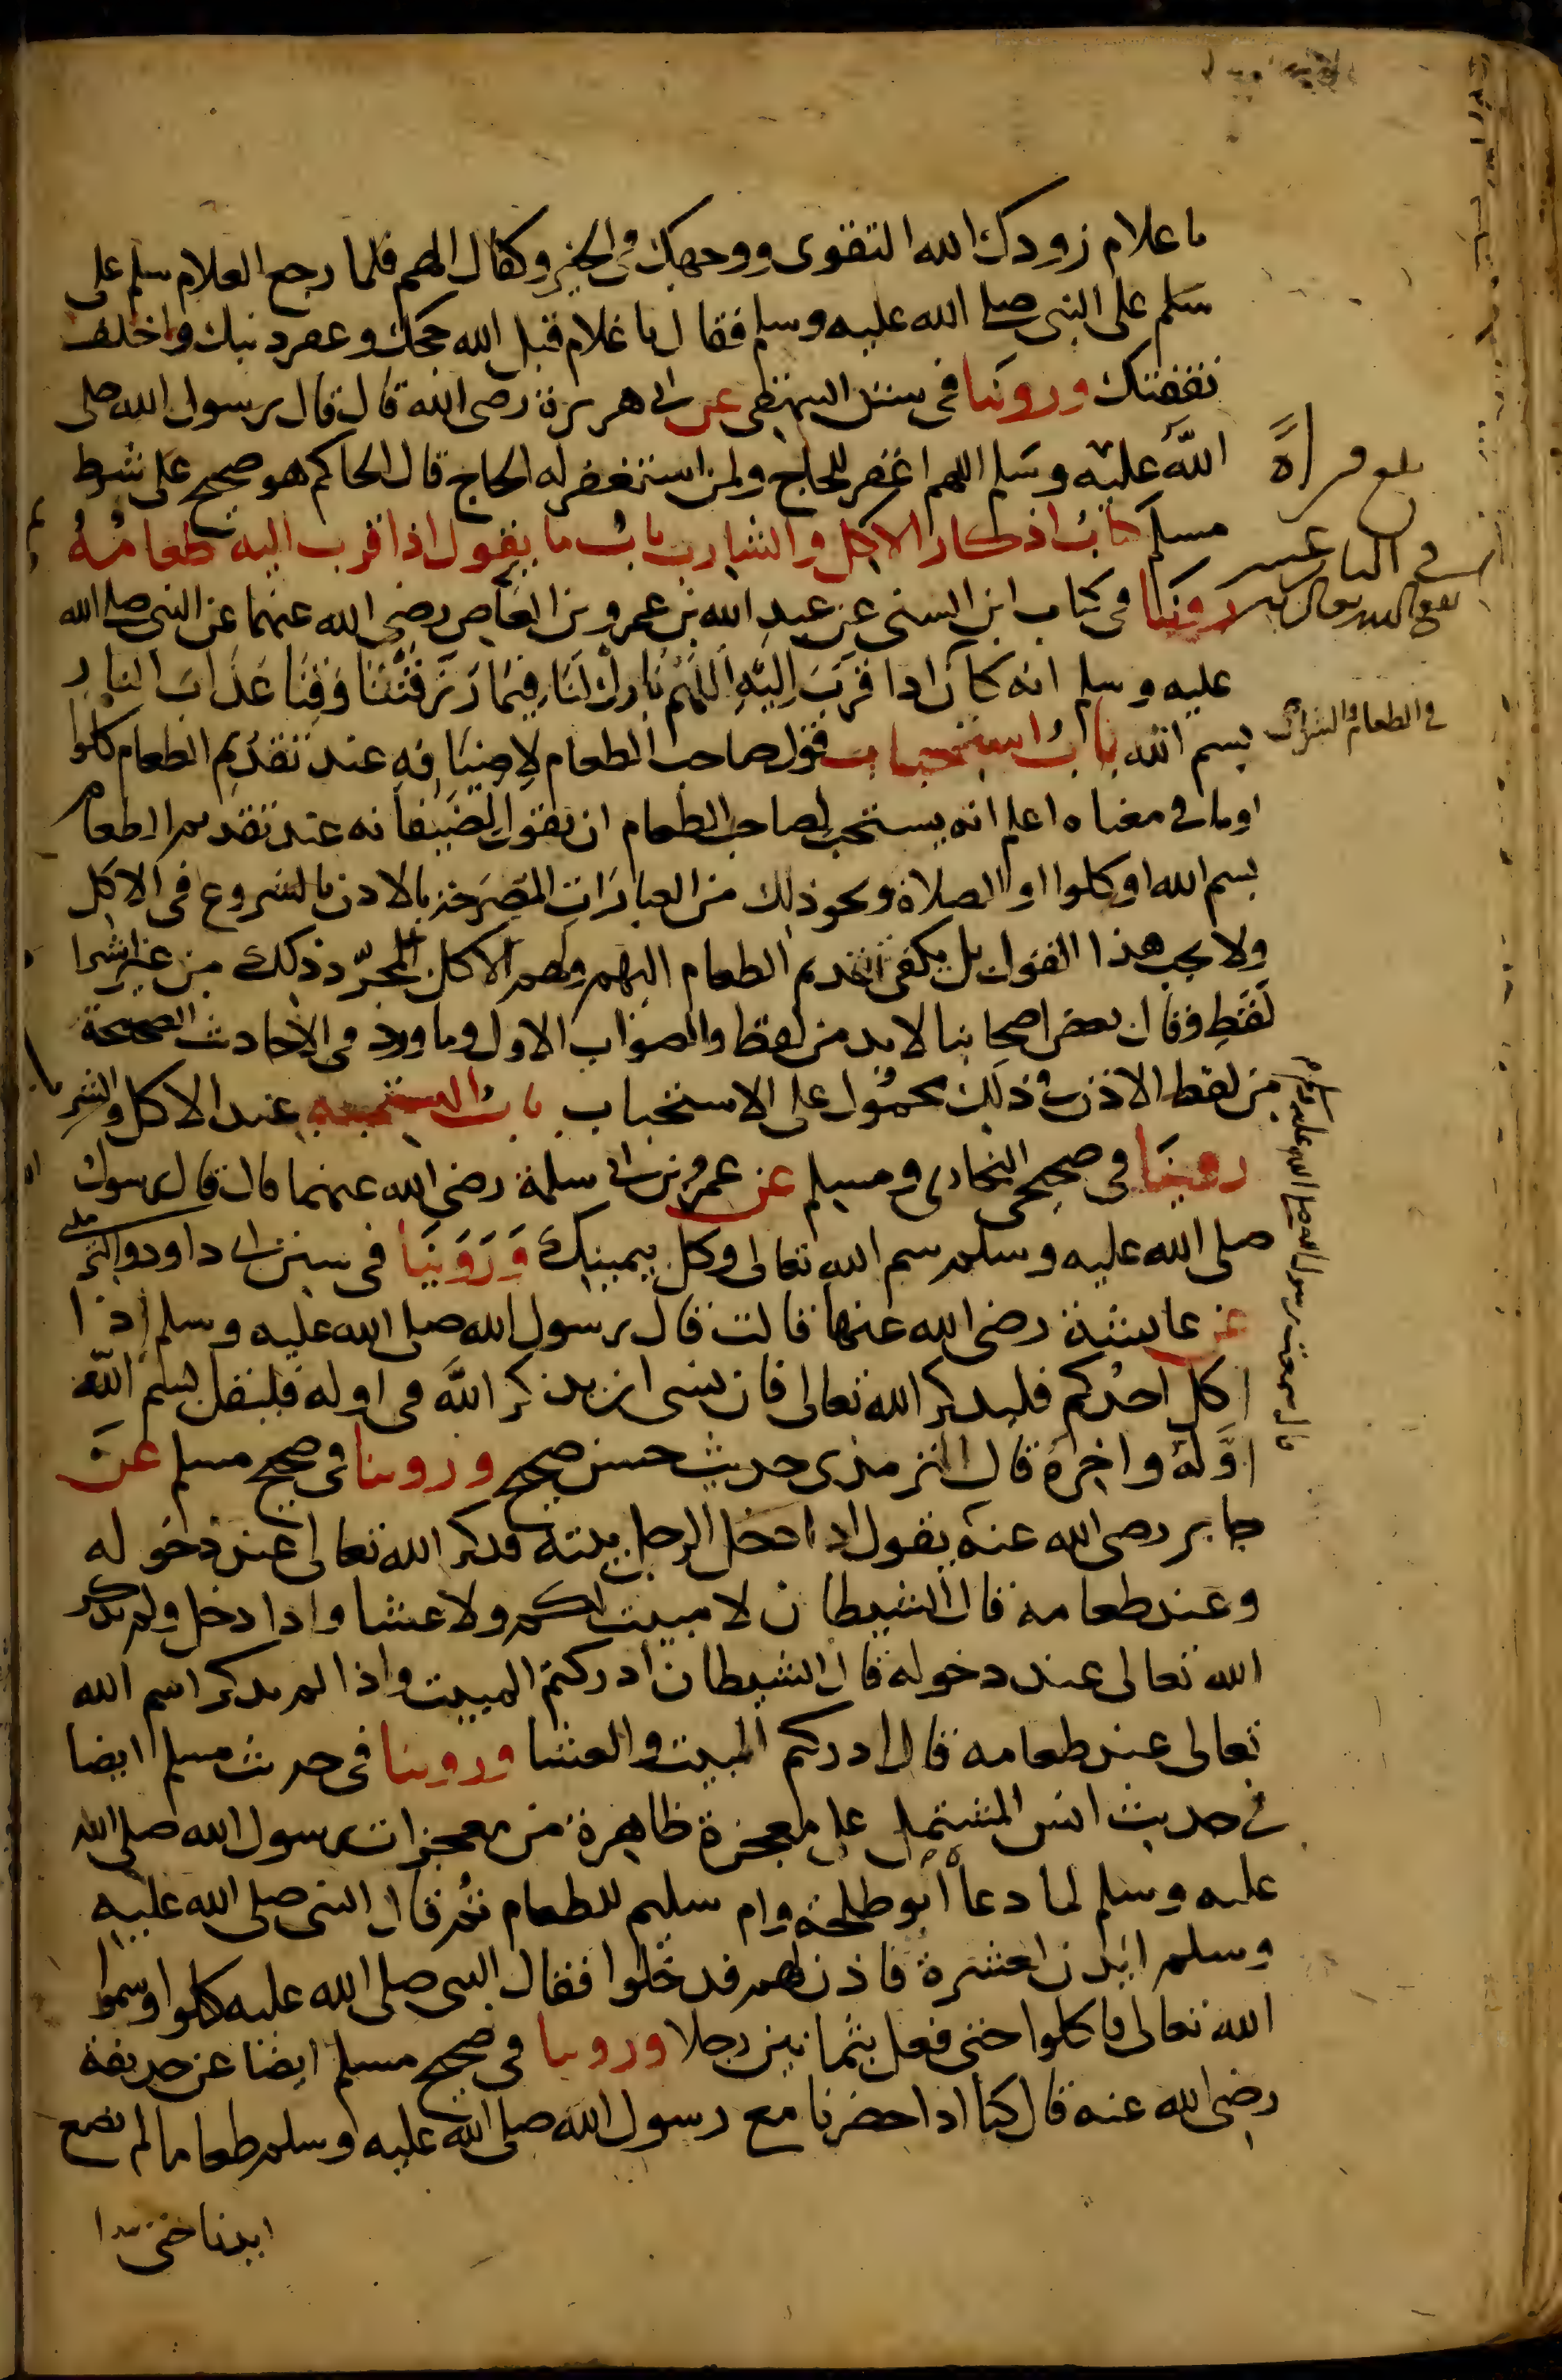 يا غلام زودك الله التقوى ووجهك في الخير وكفاك الهم فلما رجع الغلام سلم على
سلم على النبي صلى الله عليه وسلم فقال يا غلام قبل الله حجك وغفر ذنبك واخلف
نفقتك وروينا في سنن البيهقي عن ابي هريرة رضي الله قال قال رسول الله صلى
الله عليه وسلم اللهم اغفر للحاج ولمن استغفر له الحاج قال الحاكم هو صحيح على شرط
مسلم كتاب اذكار الاكل والشارب باب ما يقول اذا قرب اليه طعامه
روينا في كتاب ابن السني عن عبد الله بن عمرو بن العاص رضي الله عنهما عن النبي صلى الله
عليه وسلم انه كان اذا قرب اليه اللهم بارك لنا فيما رزقتنا وقنا عذاب النار
بسم الله باب استحباب قول صاحب الطعام لاضيافه عند تقديم الطعام كلوا
او ما في معناه اعلم انه يستحب لصاحب الطعام ان يقول لضيفانه عند تقديم الطعام
بسم الله او كلوا او الصلاة ونحو ذلك من العبارات المصرحة بالاذن بالشروع في الاكل
ولا يجب هذا القول بل يكفي تقديم الطعام اليهم ولهم الاكل بمجرد ذلك من غير اشترا
لفظ وقال بعض اصحابنا لا بد من لفظ والصواب الاول وما ورد في الاحاديث الصحيحة
من لفظ الاذن في ذلك محمول على الاستحباب باب التسمية عند الاكل والشر
روينا في صحيحي البخاري ومسلم عن عمر بن ابي سلمة رضي الله عنهما قال قال رسول
صلى الله عليه وسلم سم الله تعالى وكل بيمينك وروينا في سنن ابي داود والتر
عن عايشة رضي الله عنها قالت قال رسول الله صلى الله عليه وسلم اذا
اكل احدكم فليذكر الله تعالى فان نسي ان يذكر الله في اوله فليقل بسم الله
اوله واخره قال الترمذي حديث حسن صحيح وروينا في صحيح مسلم عن
جابر رضي الله عنه يقول اذا دخل الرجل بيته فذكر الله تعالى عند دخوله
وعند طعامه قال الشيطان لا مبيت لكم ولا عشا واذا دخل ولم يذكر
الله تعالى عند دخوله قال الشيطان ادركتم المبيت واذا لم يذكر اسم الله
تعالى عند طعامه قال ادركتم المبيت والعشا وروينا في حديث مسلم ايضا
في حديث انس المشتمل على معجزة ظاهرة من معجزات رسول الله صلى الله
عليه وسلم لما دعا ابو طلحة وام سليم للطعام ثم قال النبي صلى الله عليه
وسلم ايذن لعشرة فاذن لهم فدخلوا فقال النبي صلى الله عليه كلوا وسموا
الله تعالى فاكلوا حتى فعل بثمانين رجلا وروينا في صحيح مسلم ايضا عن حذيفة
رضي الله عنه قال كنا اذا حضرنا مع رسول الله صلى الله عليه وسلم طعاما لم نضع
ايدينا حتى يبدا
بلغ قراءة
نفع الله تعالى به
في الطعام والشراب
قال سمعت رسول الله صلى الله عليه وسلم